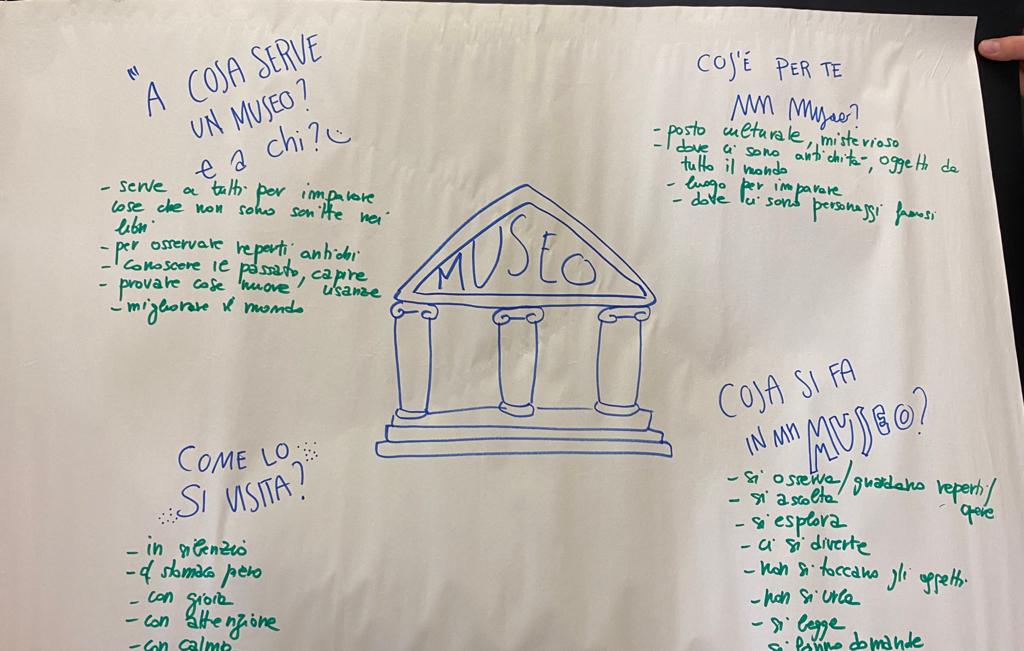 "A COSA SERVE
UN MUSEO?
e a chi?
- serve a tutti per imparare
cose che non sono scritte nei
libri
- per osservare reperti antichi
- conoscere il passato, capire
- provare cose nuove, usanze
- migliorare il mondo
COS'É PER TE
UN Museo?
- posto culturale, misterioso
- dove ci sono antichità, oggetti da
tutto il mondo
- luogo per imparare
- dove ci sono personaggi famosi
MUSEO
COME LO
SI VISITA?
- in silenzio
- a stomaco pieno
- con gioia
- con attenzione
- con calma
COSA SI FA
IN UN MUSEO?
- si osserva/guardano reperti/
opere
- si ascolta
- si esplora
- ci si diverte
- non si toccano gli oggetti
- non si urla
- si legge
- si fanno domande